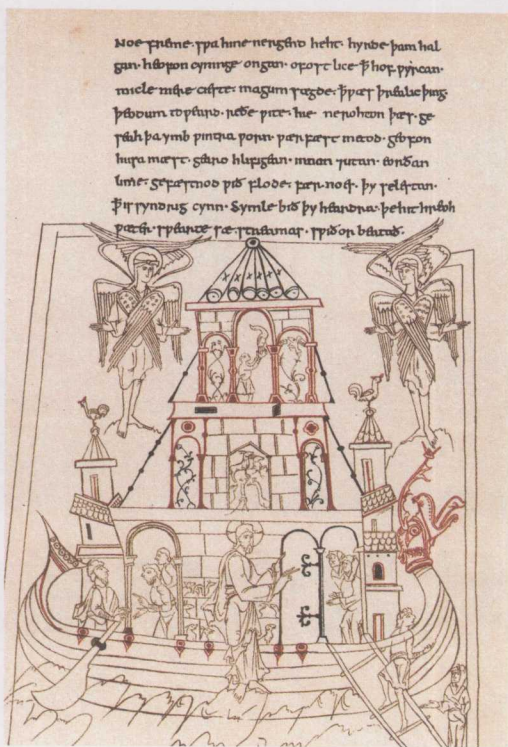 Noe freme. sƿa hine nergend heht. hyrde þam hal
gan. heofon cyninge ongan. ofost lice. ꝥ hof ƿyrcan.
micle mere cieste. magum sægde. ꝥ ƿæs þrealic þing.
þeodum toƿeard. reðe ƿite. hie ne rohton þæs. ge
seah þa ymb ƿintra ƿorn. ƿær fæst metod. geofon
husa mæst. gearo hlifigean. innan utan. eorðan
lime. gefæstnod ƿið flode. fær noes. þy selestan.
ꝥ is syndrig cynn. Symle bið þy heardra. þe hit hreoh
ƿæter. sƿearte sæ streamas. sƿiðor beatað.